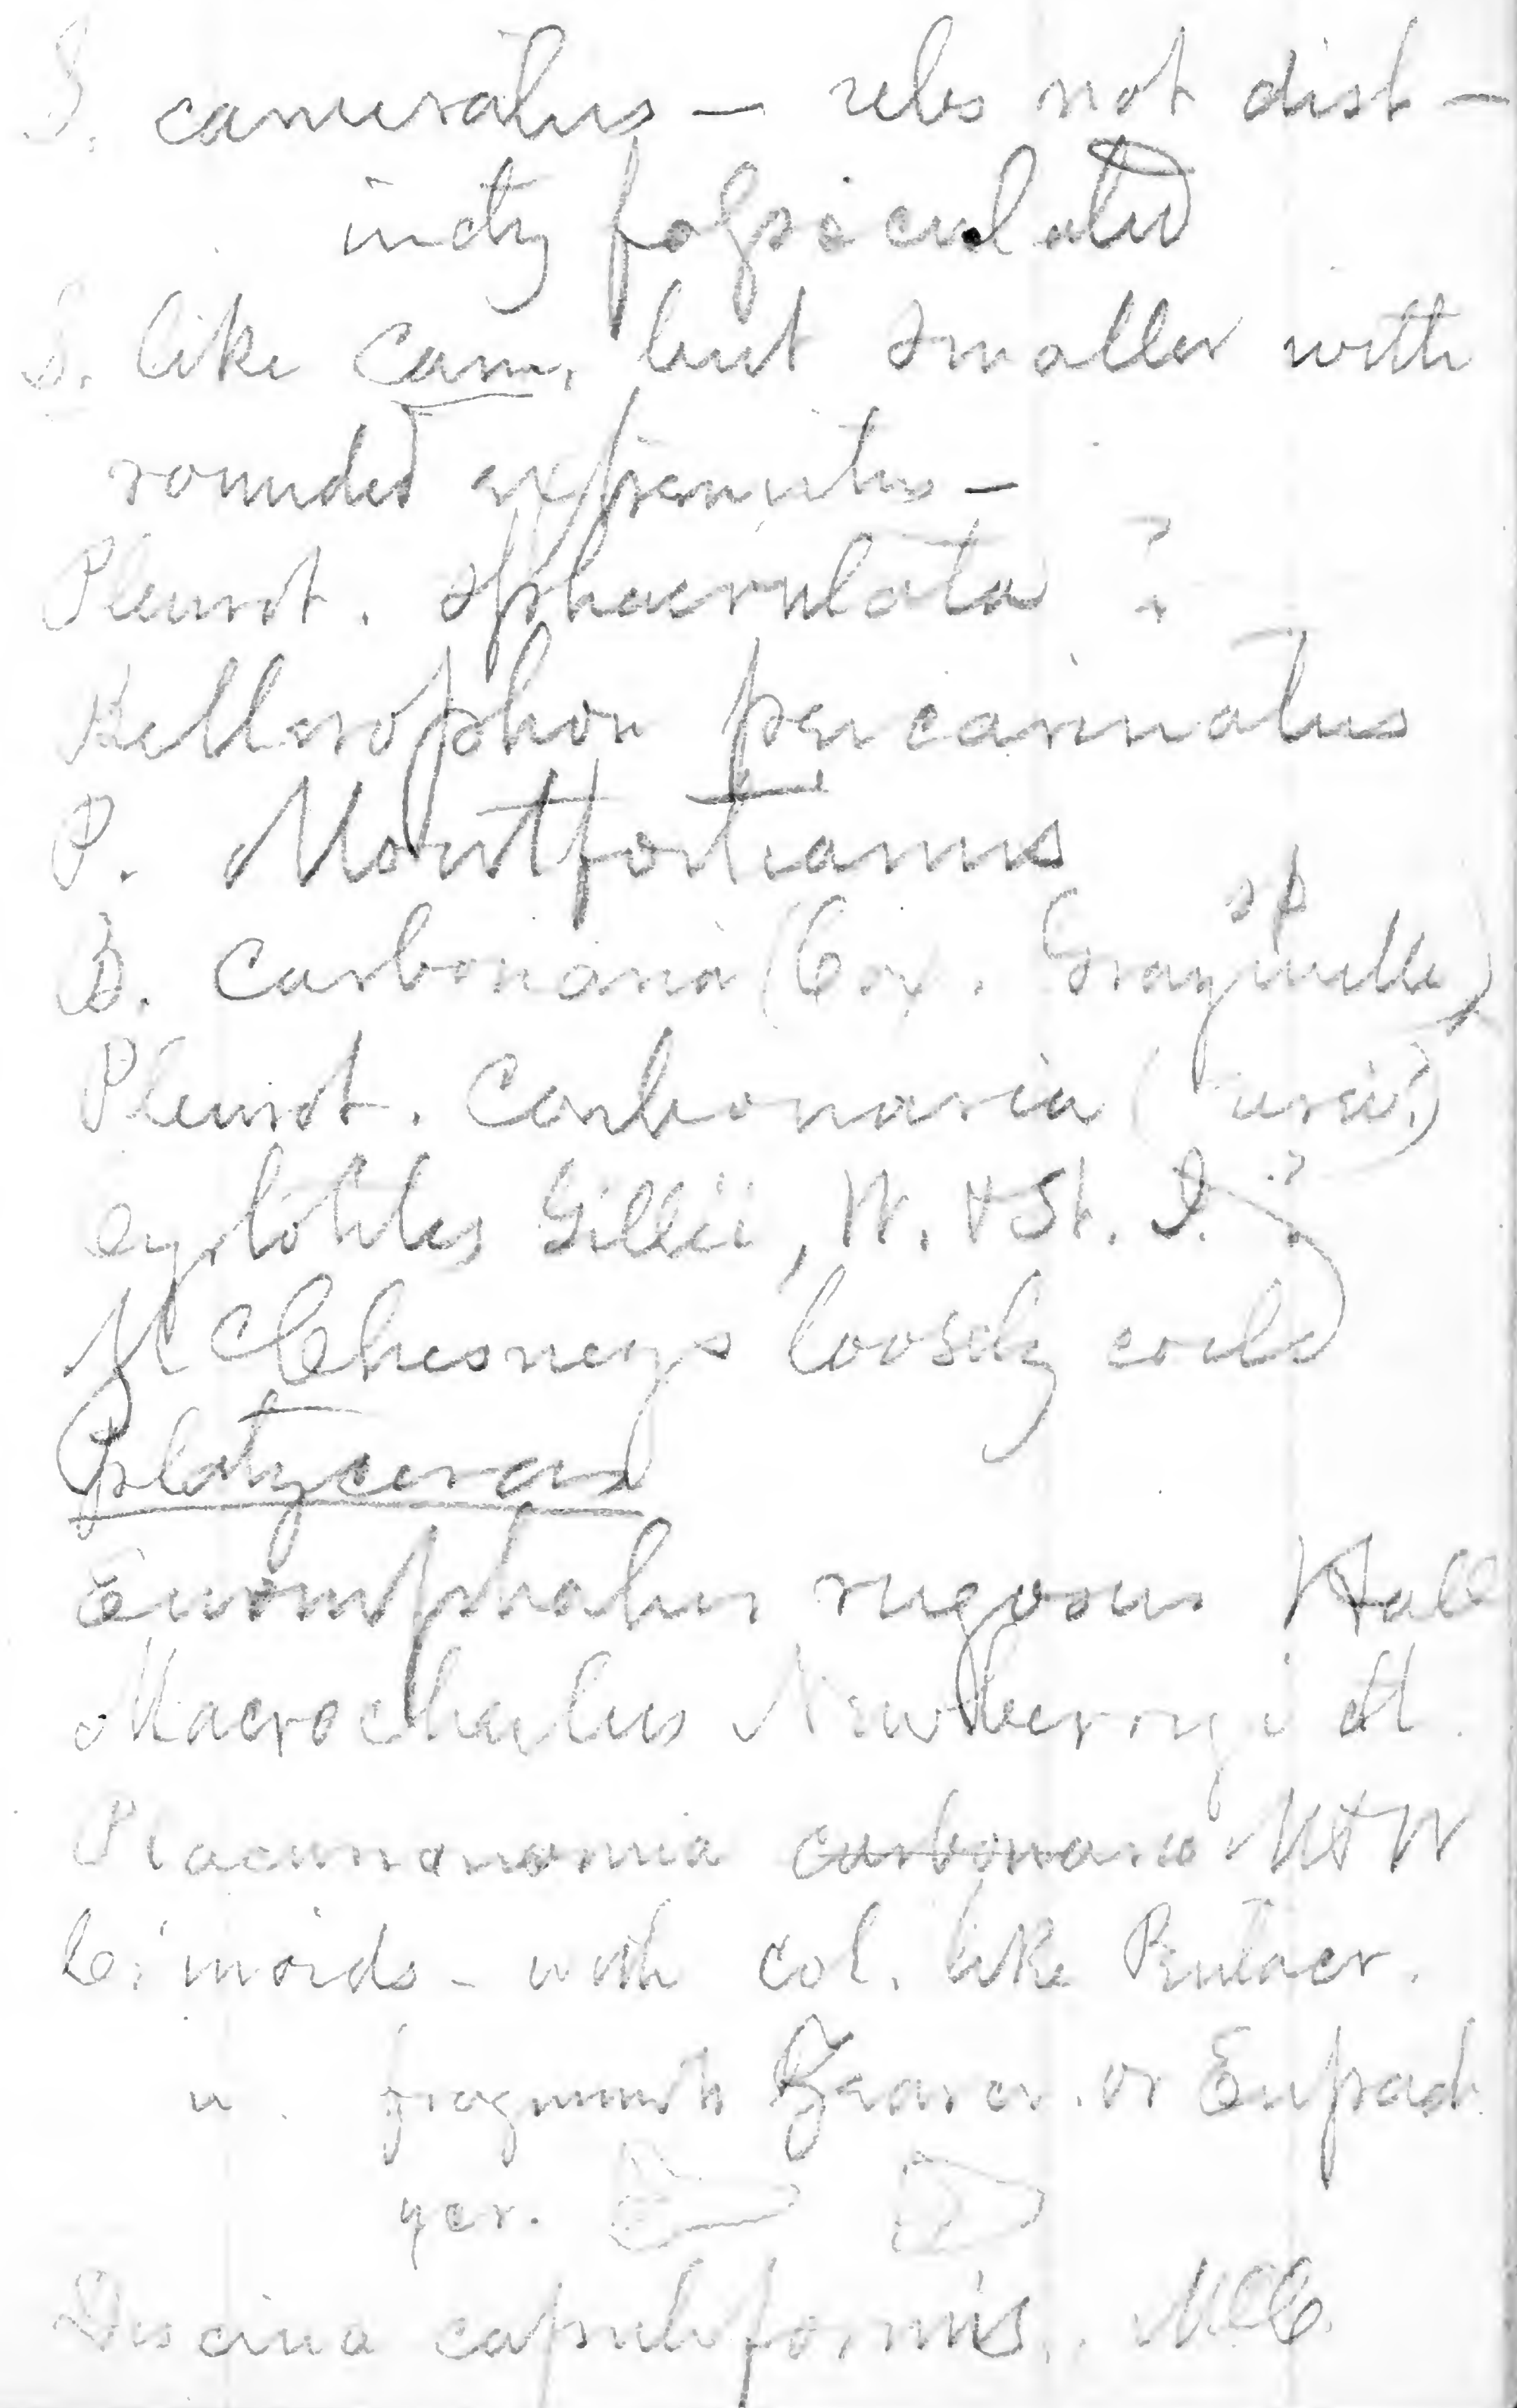 S. cameratus — ribs not dist-
inctly fasciculated
S. like cam. but smaller with
rounded extremities —
Pleurot. sphaerulata ?
Bellerophon percarinatus
P. Montfortianus
B. carbonaria (Cox. sp Grayville)
Pleurot. Carbonaria
Gillii, N. & St. J. ?
McChesneys loosely coild
platyceras
Euomphalus rugosus Hall
Macrocheilus Newberryi H.
Placunonomia carbonaria M & W
Crinoids - with col. like Pentacr.
" fragments Zeacr. or Eupach
ycr.
Discina capuliformis, McC.